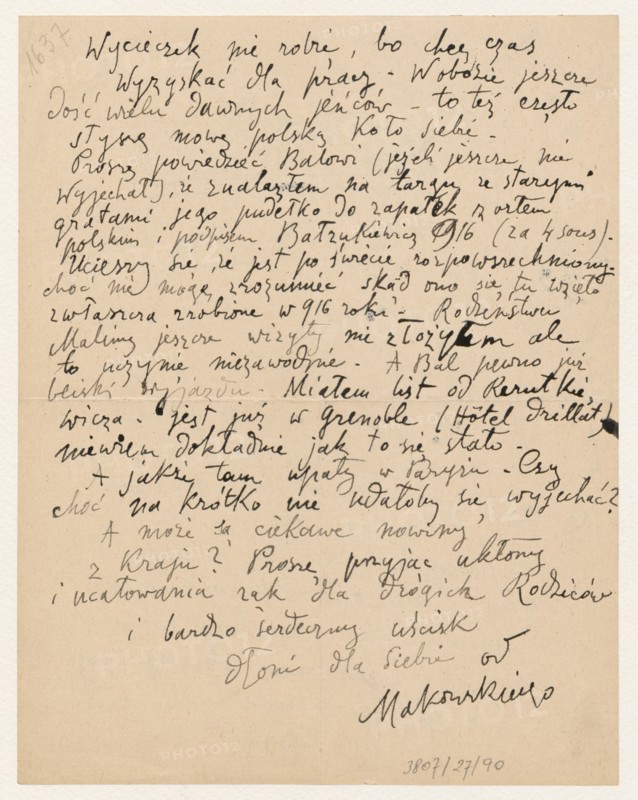 1637.
Wycieczek nie robię, bo chcę czas
wyzyskać dla pracy - W obozie jeszcze
dość wielu dawnych jeńców - to też często
słyszę mowę polską koło siebie -
Proszę powiedzieć Balowi (jeżeli jeszcze nie
wyjechał), że znalazłem na targu ze starymi
gratami jego pudełko do zapałek z orłem
polskim i podpisem Batzukiewicz 916 (za 4 sous).
Ucieszy się, że jest po świecie rozpowszechniony -
choć nie mogę zrozumieć skąd ono się tu wzięło
zwłaszcza zrobione w 916 roku - Rodzeństwu
Malimy jeszcze wizyty nie złożyłem ale
to uczynię niezawodnie - A Bal pewno już
bliski wyjazdu - Miałem list od Rerutkie
wicza - jest już w Grenoble (Hôtel Drillat)
niewiem dokładnie jak to się stało -
A jakże tam upały w Paryżu - Czy
choć na krótko nie udałoby się wyjechać?
A może są ciekawe nowiny
z Kraju? Proszę przyjąć ukłony
i ucałowania rąk dla Drogich Rodziców
i bardzo serdeczny uścisk
dłoni dla Siebie od
Makowskiego
3807/27/90
PHOTO12